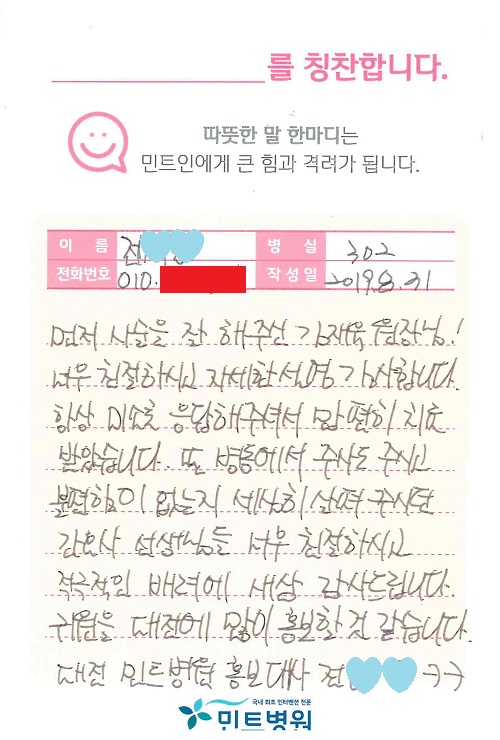 를 칭찬합니다.
따뜻한 말 한마디는
민트인에게 큰 힘과 격려가 됩니다.
이 름 전 병 실 302
전화번호 010. 작성일 2019.8.31
먼저 시술을 잘 해주신 김재욱 원장님!
너무 친절하시고 자세한 설명 감사합니다.
항상 미소로 응답해주셔서 맘 편히 치료
받았습니다. 또 병동에서 주사도 주시고
불편함이 없는지 세심히 살펴 주시던
간호사 선생님들 너무 친절하시고
적극적인 배려에 새삼 감사드립니다.
귀원을 대전에 많이 홍보할 것 같습니다.
대전 민트병원 홍보대사 전 ㅋㅋ
국내 최초 인터벤션 전문
민트병원